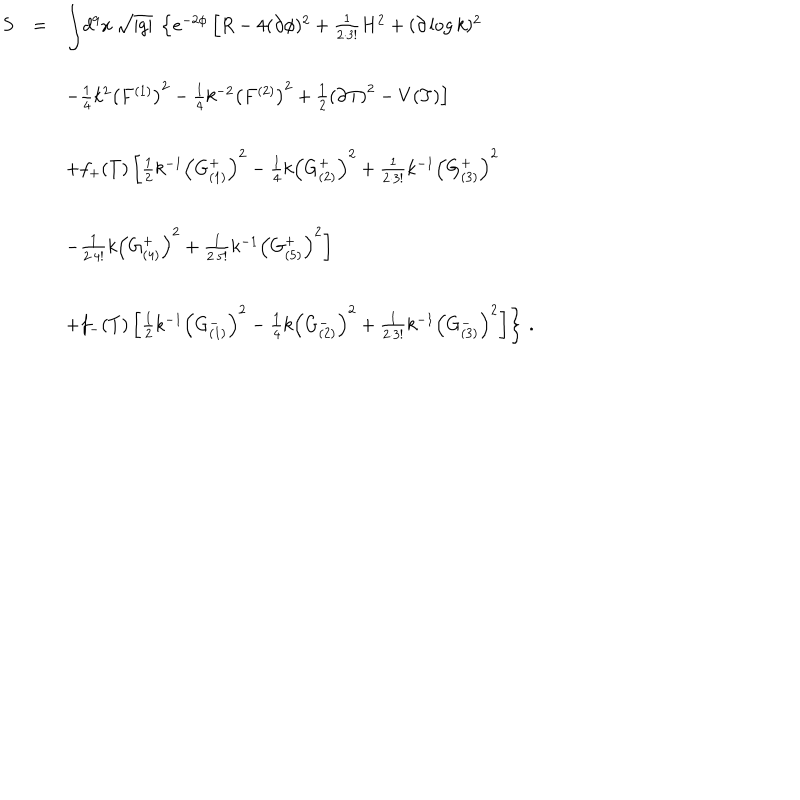 S = ∫ d⁹x √|g| { e^{-2ϕ} [ R − 4(∂ϕ)² + \frac{1}{2·3!} H² + (∂ log k)²
− \frac{1}{4} k² (F^{(1)})² − \frac{1}{4} k^{-2} (F^{(2)})² + \frac{1}{2} (∂T)² − V(T) ]
+ f_+(T) [ \frac{1}{2} k^{-1} (G^+_{(1)})² − \frac{1}{4} k (G^+_{(2)})² + \frac{1}{2·3!} k^{-1} (G^+_{(3)})²
− \frac{1}{2·4!} k (G^+_{(4)})² + \frac{1}{2·5!} k^{-1} (G^+_{(5)})² ]
+ f_-(T) [ \frac{1}{2} k^{-1} (G^-_{(1)})² − \frac{1}{4} k (G^-_{(2)})² + \frac{1}{2·3!} k^{-1} (G^-_{(3)})² ] } .